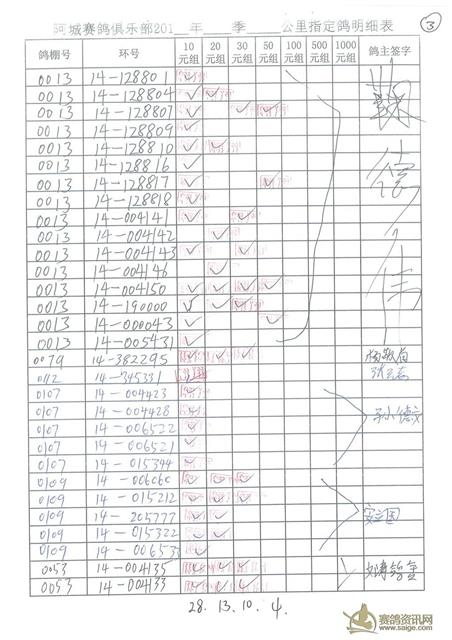 阿城赛鸽俱乐部201__年__季____公里指定鸽明细表 ③
鸽棚号 环号 10元组 20元组 30元组 50元组 100元组 500元组 1000元组 鸽主签字
0013 14-128801 ✓
0013 14-128804 ✓ ✓
0013 14-128807 ✓ ✓ ✓
0013 14-128809 ✓
0013 14-128810 ✓ ✓
0013 14-128816 ✓
0013 14-128817 ✓ ✓
0013 14-128818 ✓
0013 14-004141 ✓ ✓
0013 14-004142 ✓
0013 14-004143 ✓ ✓
0013 14-004146 ✓
0013 14-004150 ✓ ✓ ✓ ✓
0013 14-190000 ✓ ✓ ✓
0013 14-000043 ✓ ✓
0013 14-005431 ✓
0079 14-382295 ✓ ✓ ✓
0112 14-345331 ✓
0107 14-004423 ✓
0107 14-004428 ✓
0107 14-006522 ✓
0107 14-006521 ✓
0107 14-015344 ✓
0109 14-006060 ✓ ✓ ✓
0109 14-015212 ✓ ✓ ✓
0109 14-205777 ✓ ✓
0109 14-015322 ✓ ✓
0109 14-006533 ✓
0053 14-004135 ✓ ✓ ✓
0053 14-004133 ✓ ✓ ✓
28. 13. 10. 4.
赛鸽资讯网
www.saige.com